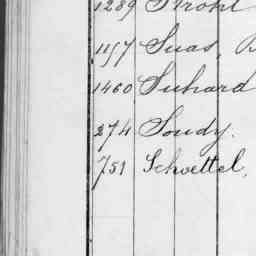 1289 Strohl
1197 Suas, B
1460 Suhard
274 Soudy.
751 Schvettel,